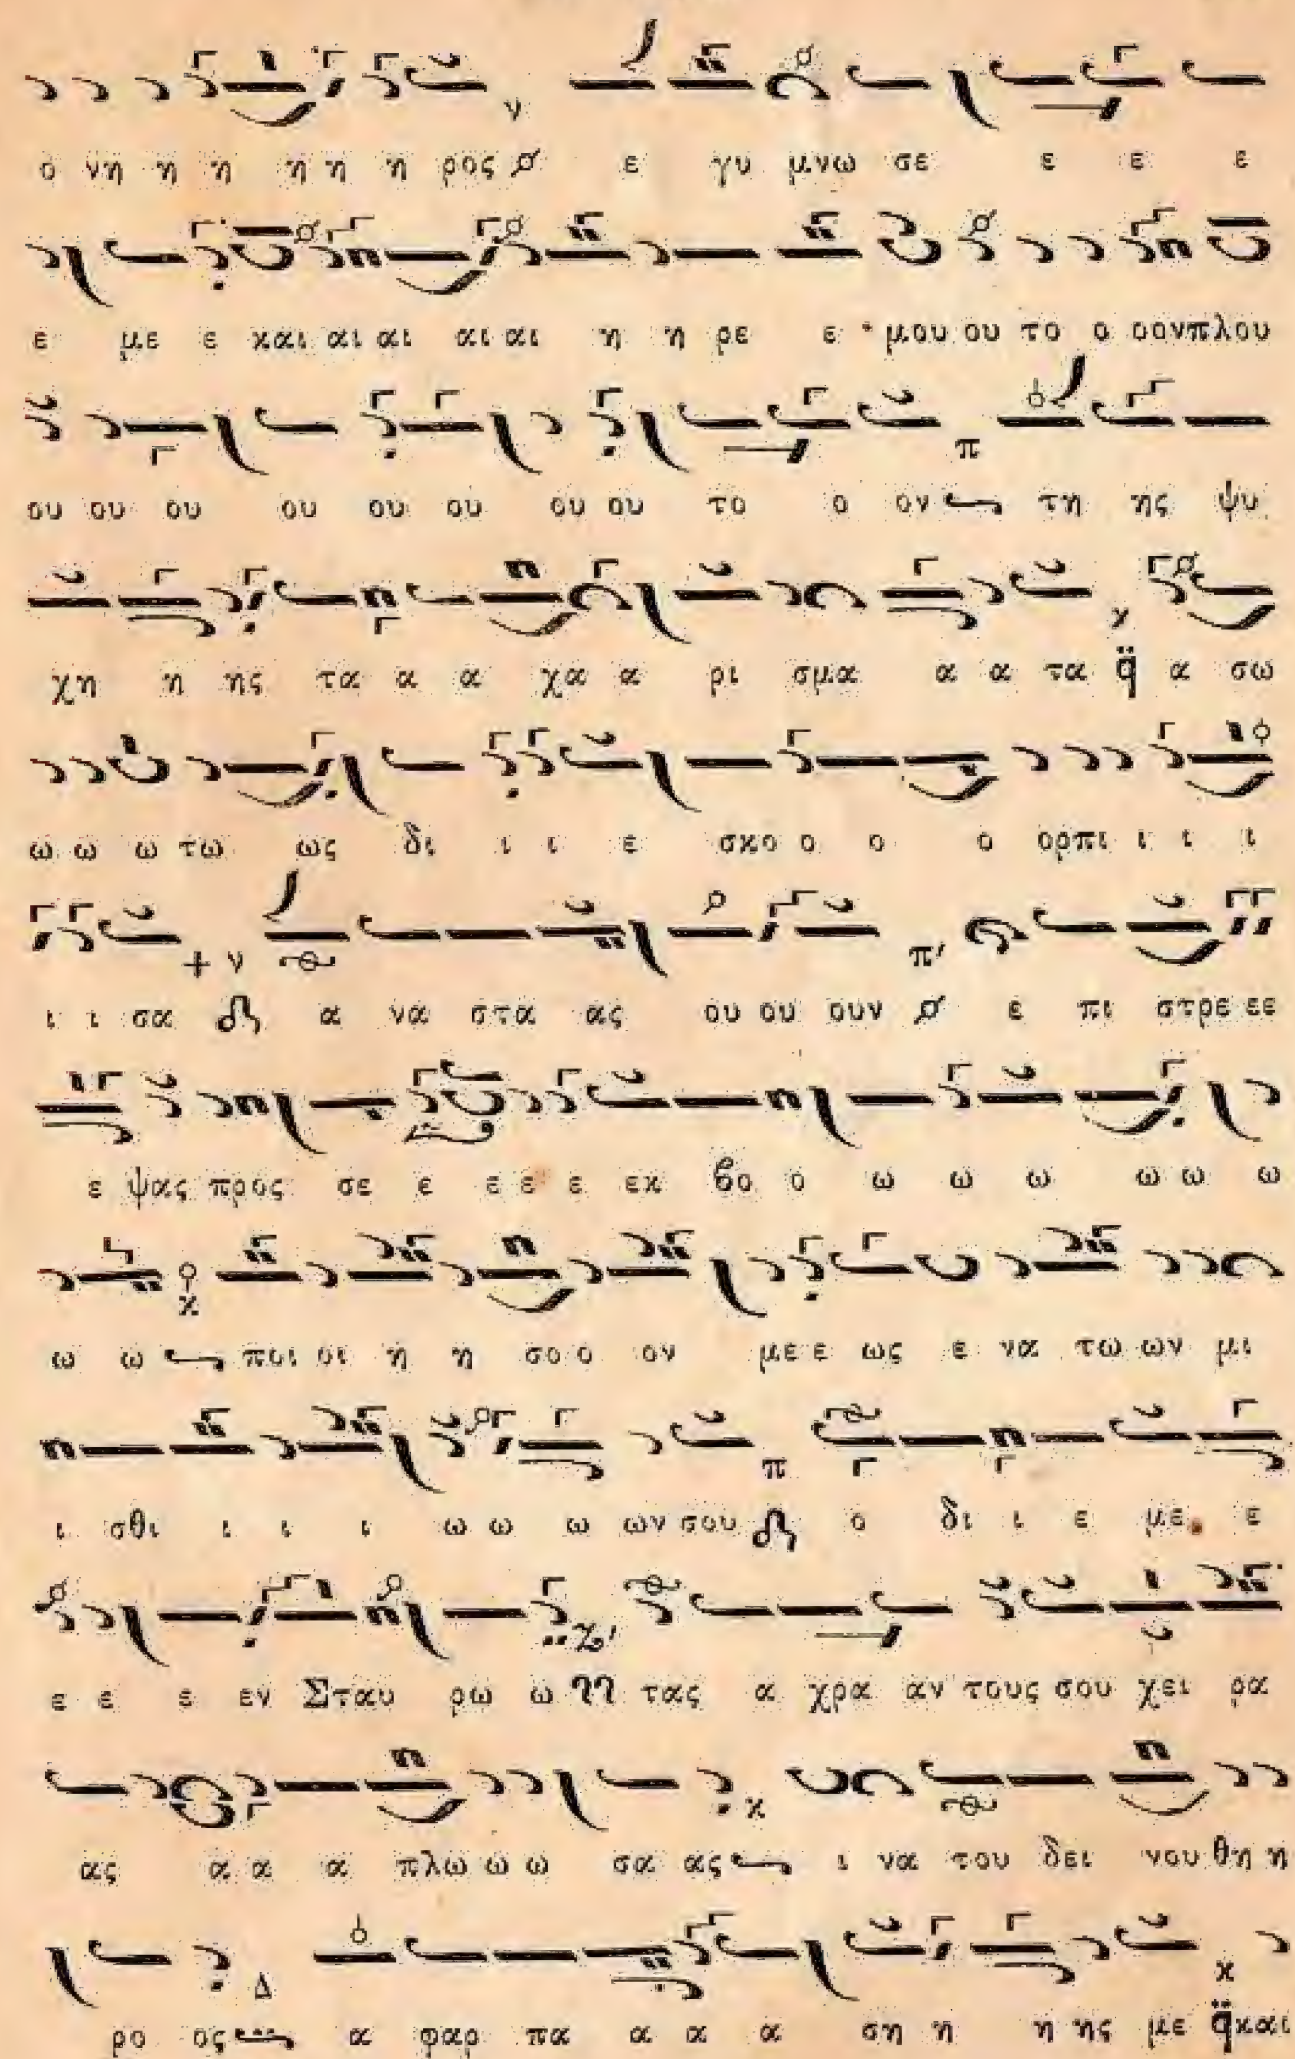 ο νη η η η η η ρος ε γυ μνω σε ε ε ε
ε με ε και αι αι αι αι η η ρε ε μου ου το ο οονπλου
ου ου ου ου ου ου ου ου το ο ον τη ης ψυ
χη η ης τα α α χα α ρι σμα α α τα α σω
ω ω ω τω ως δι ι ι ε σκο ο ο ο ορπι ι ι ι
ι ι σα α να στα ας ου ου ουν ε πι στρε εε
ε ψας προς σε ε ε ε ε εκ βο ο ω ω ω ω ω ω
ω ω ποι οι η η σο ο ον με ε ως ε να τω ων μι
ι σθι ι ι ι ω ω ω ων σου ο δι ι ε με ε
ε ε ε εν Σταυ ρω ω τας α χρα αν τους σου χει ρα
ας α α α πλω ω ω σα ας ι να του δει νου θη η
ρο ος α φαρ πα α α α ση η η ης με και